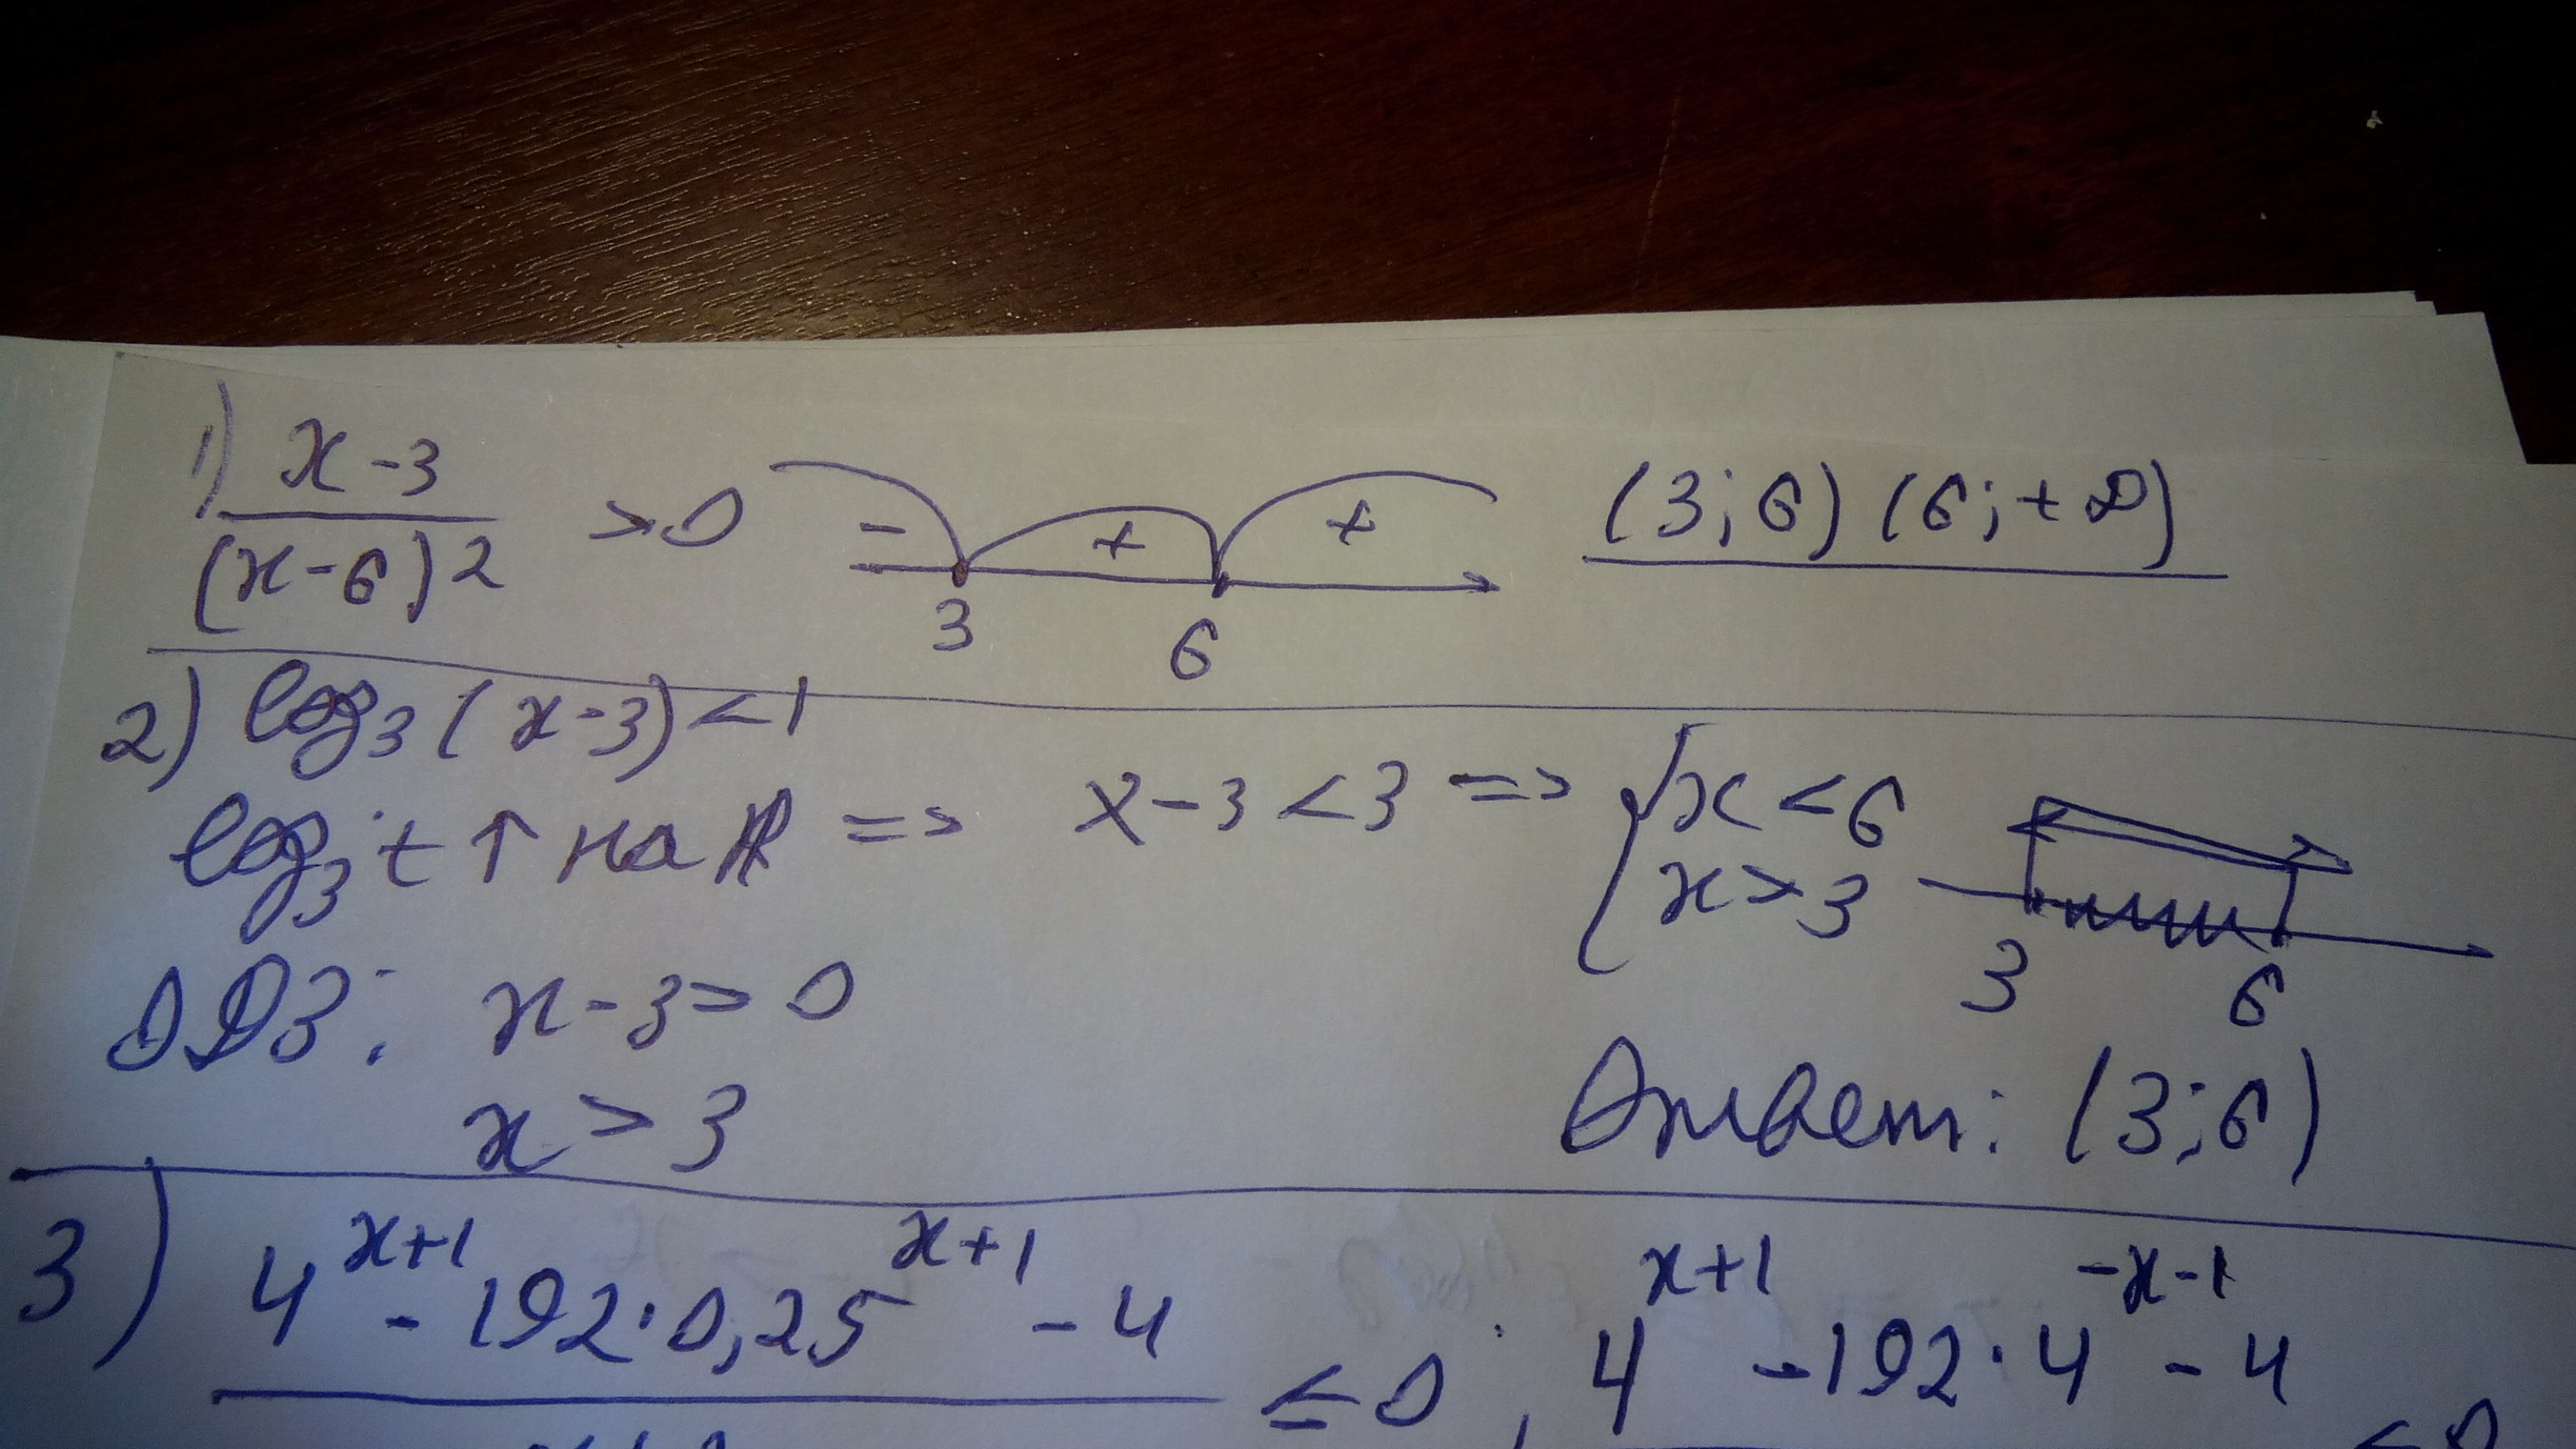 1) x-3 / (x-6)2 >0 - + + 3 6 (3;6) (6;+∞)
2) log3 (x-3)<1
log3 t ↑ на R => x-3<3 => { x<6
x>3 3 6
ОДЗ: x-3>0
x>3 Ответ: (3;6)
3) 4^x+1 -192·0,25^x+1 -4 ≤0 ; 4^x+1 -192·4^-x-1 -4